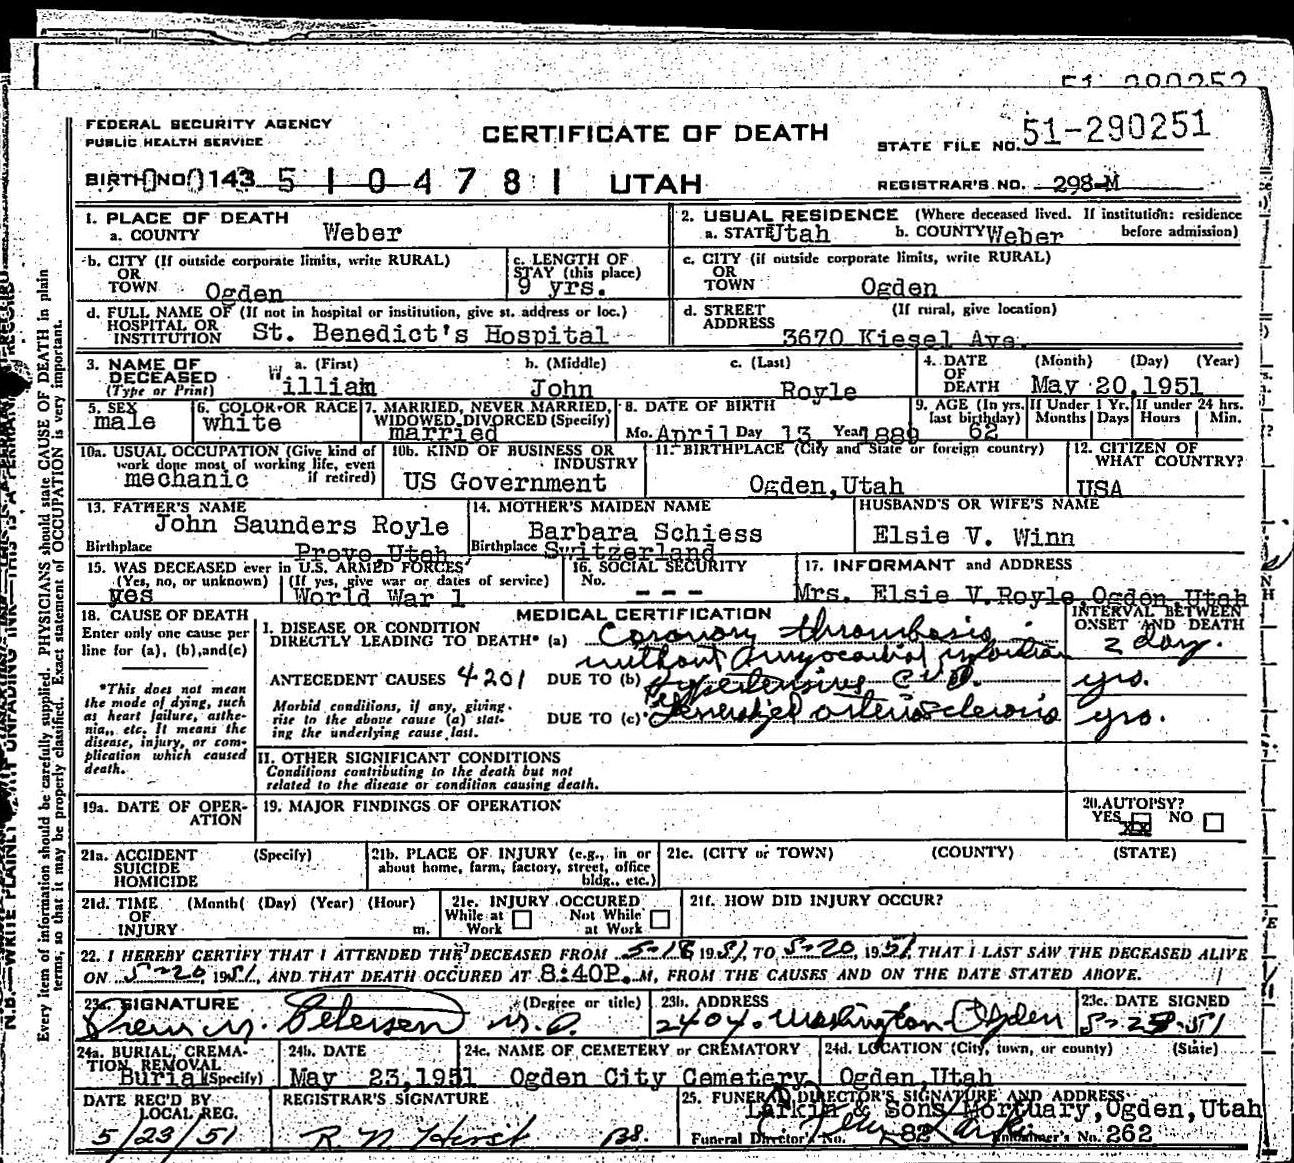 51-290252
FEDERAL SECURITY AGENCY
PUBLIC HEALTH SERVICE
CERTIFICATE OF DEATH
STATE FILE NO. 51-290251
BIRTH NO. 0143 5104781 UTAH
REGISTRAR'S NO. 298-M
1. PLACE OF DEATH
a. COUNTY Weber
2. USUAL RESIDENCE (Where deceased lived. If institution: residence before admission)
a. STATE Utah b. COUNTY Weber
b. CITY (If outside corporate limits, write RURAL) OR TOWN Ogden
c. LENGTH OF STAY (this place) 9 yrs.
c. CITY (if outside corporate limits, write RURAL) OR TOWN Ogden
d. FULL NAME OF (If not in hospital or institution, give st. address or loc.) HOSPITAL OR INSTITUTION St. Benedict's Hospital
d. STREET ADDRESS (If rural, give location) 3670 Kiesel Ave.
3. NAME OF DECEASED (Type or Print) a. (First) b. (Middle) c. (Last)
William John Royle
4. DATE OF DEATH (Month) (Day) (Year) May 20,1951
5. SEX male
6. COLOR OR RACE white
7. MARRIED, NEVER MARRIED, WIDOWED, DIVORCED (Specify) married
8. DATE OF BIRTH Mo. April Day 13 Year 1889
9. AGE (In yrs. last birthday) 62
If Under 1 Yr. Months Days
If under 24 hrs. Hours Min.
10a. USUAL OCCUPATION (Give kind of work done most of working life, even if retired) mechanic
10b. KIND OF BUSINESS OR INDUSTRY US Government
11. BIRTHPLACE (City and State or foreign country) Ogden,Utah
12. CITIZEN OF WHAT COUNTRY? USA
13. FATHER'S NAME John Saunders Royle
Birthplace Provo,Utah
14. MOTHER'S MAIDEN NAME Barbara Schiess
Birthplace Switzerland
HUSBAND'S OR WIFE'S NAME Elsie V. Winn
15. WAS DECEASED ever in U.S. ARMED FORCES
(Yes, no, or unknown) yes
(If yes, give war or dates of service) World War 1
16. SOCIAL SECURITY No. - - -
17. INFORMANT and ADDRESS
Mrs. Elsie V.Royle,Ogden,Utah
18. CAUSE OF DEATH
Enter only one cause per line for (a), (b),and(c)
MEDICAL CERTIFICATION
INTERVAL BETWEEN ONSET AND DEATH
I. DISEASE OR CONDITION DIRECTLY LEADING TO DEATH* (a) Coronary thrombosis 2 day.
without myocardial infarction
ANTECEDENT CAUSES 4201 DUE TO (b) Hypertensive C.V.D. yrs.
Morbid conditions, if any, giving rise to the above cause (a) stating the underlying cause last.
DUE TO (c) Generalized arteriosclerosis yrs.
*This does not mean the mode of dying, such as heart failure, asthenia, etc. It means the disease, injury, or complication which caused death.
II. OTHER SIGNIFICANT CONDITIONS
Conditions contributing to the death but not related to the disease or condition causing death.
19a. DATE OF OPERATION
19. MAJOR FINDINGS OF OPERATION
20. AUTOPSY?
YES XX NO
21a. ACCIDENT SUICIDE HOMICIDE (Specify)
21b. PLACE OF INJURY (e.g., in or about home, farm, factory, street, office bldg., etc.)
21c. (CITY or TOWN) (COUNTY) (STATE)
21d. TIME OF INJURY (Month( (Day) (Year) (Hour) m.
21e. INJURY OCCURED
While at Work Not While at Work
21f. HOW DID INJURY OCCUR?
22. I HEREBY CERTIFY THAT I ATTENDED THE DECEASED FROM 5-18 1951, TO 5-20, 1951 THAT I LAST SAW THE DECEASED ALIVE
ON 5-20, 1951, AND THAT DEATH OCCURED AT 8:40P. M, FROM THE CAUSES AND ON THE DATE STATED ABOVE.
23a. SIGNATURE (Degree or title) M. Petersen M.D.
23b. ADDRESS 2404 Washington Ogden
23c. DATE SIGNED
24a. BURIAL, CREMATION, REMOVAL (Specify) Burial
24b. DATE May 23,1951
24c. NAME OF CEMETERY or CREMATORY Ogden City Cemetery
24d. LOCATION (City, town, or county) (State) Ogden,Utah
DATE REC'D BY LOCAL REG. 5/23/51
REGISTRAR'S SIGNATURE
25. FUNERAL DIRECTOR'S SIGNATURE AND ADDRESS
Larkin & Sons Mortuary,Ogden,Utah
Funeral Director's No. 82 Embalmer's No. 262
Every item of information should be carefully supplied. PHYSICIANS should state CAUSE OF DEATH in plain
terms, so that it may be properly classified. Exact statement of OCCUPATION is very important.